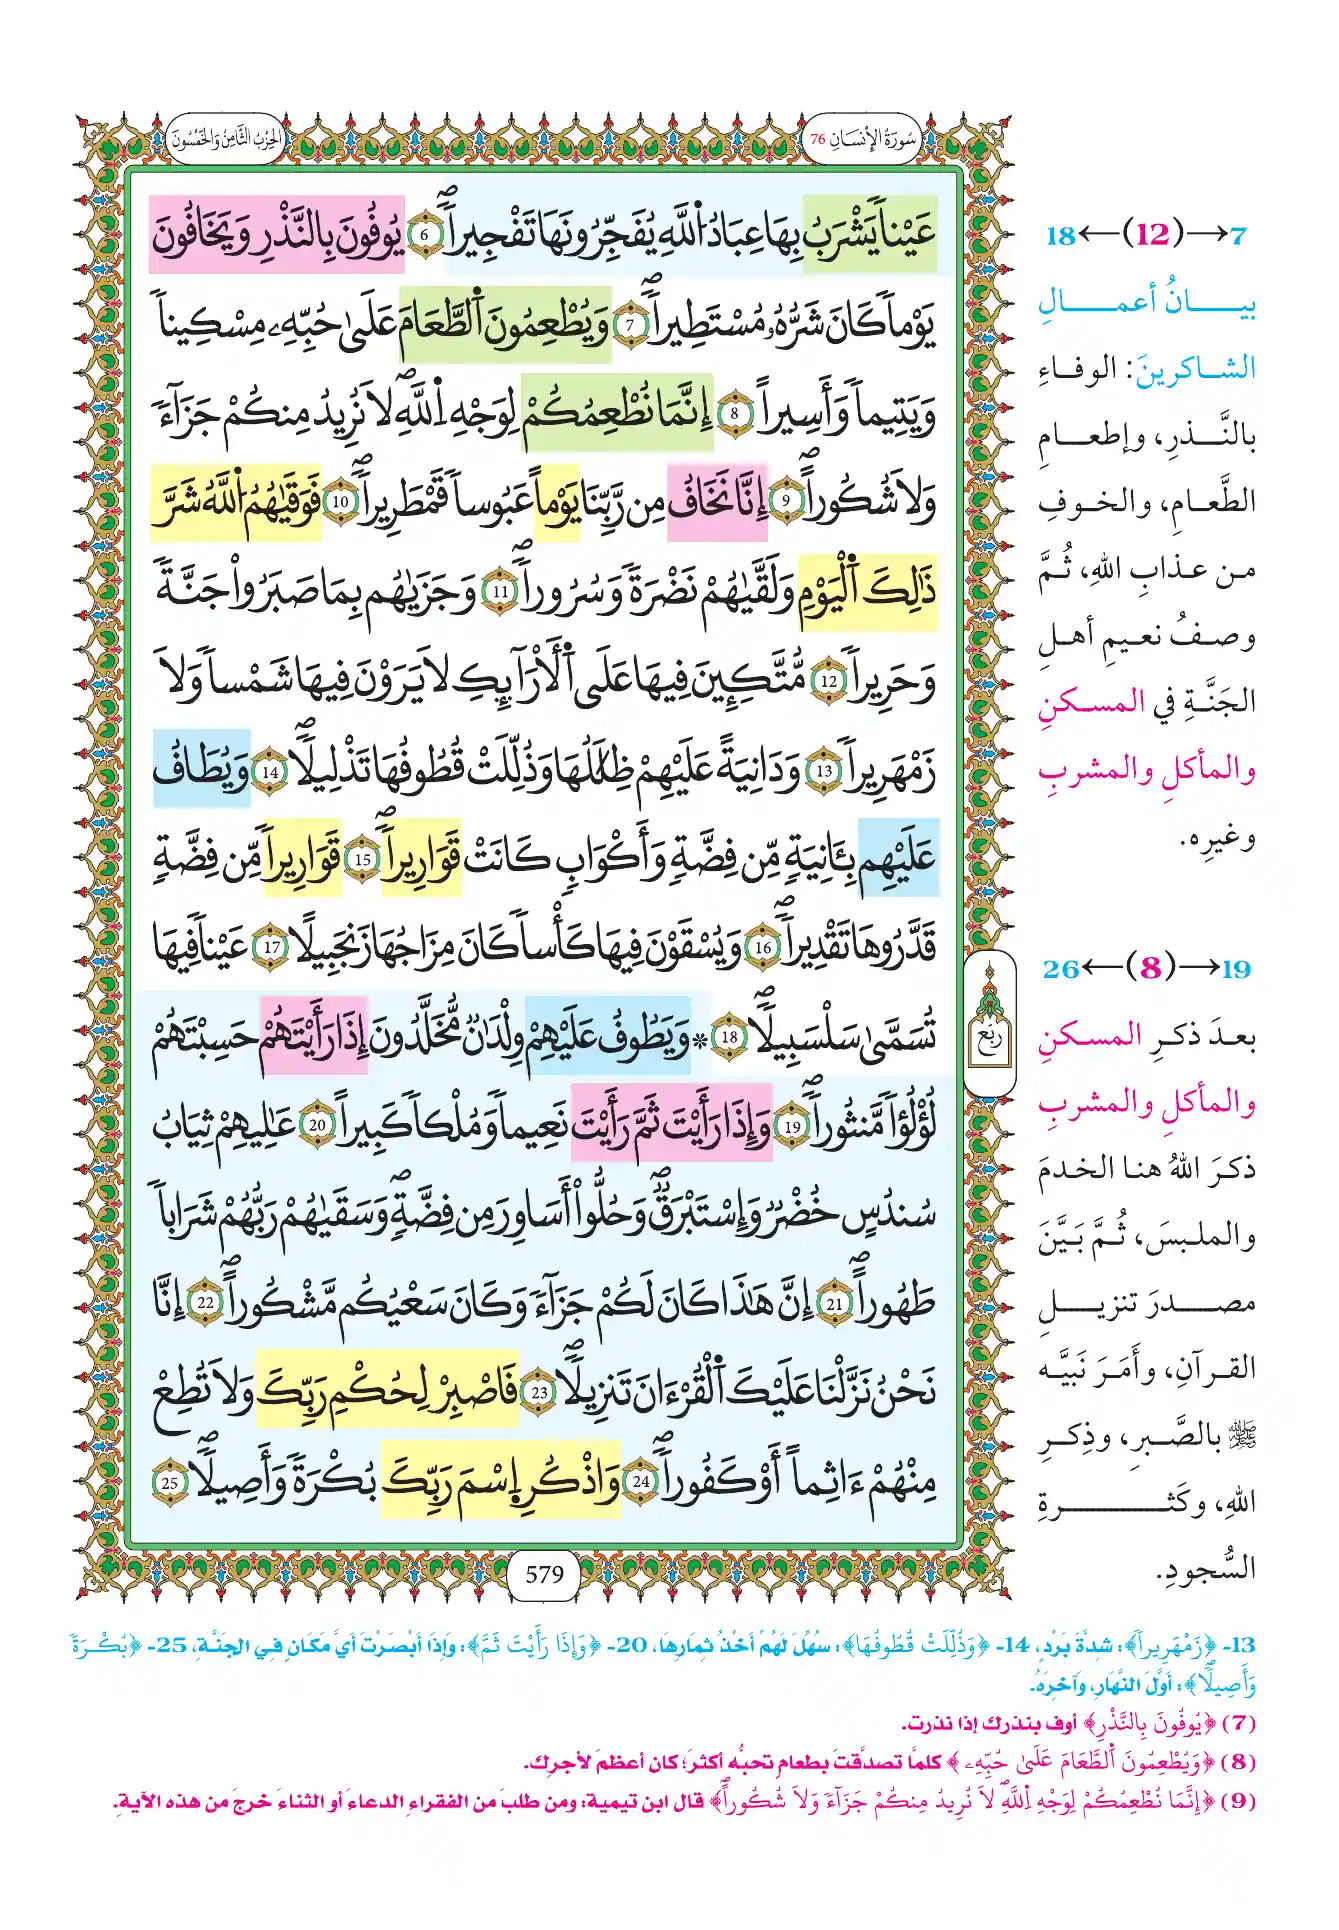 سُورَةُ الإِنْسَانِ 76
الحِزْبُ الثَّامِنُ وَالخَمْسُونَ
عَيْناٗ يَشْرَبُ بِهَا عِبَادُ اُ۬للَّهِ يُفَجِّرُونَهَا تَفْجِيراٗۖ 6 يُوفُونَ بِالنَّذْرِ وَيَخَافُونَ
يَوْماٗ كَانَ شَرُّهُۥ مُسْتَطِيراٗۖ 7 وَيُطْعِمُونَ اَ۬لطَّعَامَ عَلَىٰ حُبِّهِۦ مِسْكِيناٗ
وَيَتِيماٗ وَأَسِيراًۖ 8 إِنَّمَا نُطْعِمُكُمْ لِوَجْهِ اِ۬للَّهِۖ لَا نُرِيدُ مِنكُمْ جَزَآءٗ
وَلَا شُكُوراًۖ 9 إِنَّا نَخَافُ مِن رَّبِّنَا يَوْماً عَبُوساٗ قَمْطَرِيراٗۖ 10 فَوَقَىٰهُمُ اُ۬للَّهُ شَرَّ
ذَٰلِكَ اَ۬لْيَوْمِ وَلَقَّىٰهُمْ نَضْرَةٗ وَسُرُوراٗۖ 11 وَجَزَىٰهُم بِمَا صَبَرُواْ جَنَّةٗ
وَحَرِيراٗ 12 مُّتَّكِـِٕينَ فِيهَا عَلَى اَ۬لْأَرَآئِكِ لَا يَرَوْنَ فِيهَا شَمْساٗ وَلَا
زَمْهَرِيراٗ 13 وَدَانِيَةً عَلَيْهِمْ ظِلَٰلُهَا وَذُلِّلَتْ قُطُوفُهَا تَذْلِيلاٗۖ 14 وَيُطَافُ
عَلَيْهِم بِـَٔانِيَةٖ مِّن فِضَّةٖ وَأَكْوَابٖ كَانَتْ قَوَارِيراٗۖ 15 قَوَارِيراٗ مِّن فِضَّةٖ
قَدَّرُوهَا تَقْدِيراٗۖ 16 وَيُسْقَوْنَ فِيهَا كَأْساٗ كَانَ مِزَاجُهَا زَنجَبِيلاً 17 عَيْناٗ فِيهَا
تُسَمَّىٰ سَلْسَبِيلاٗۖ 18 * وَيَطُوفُ عَلَيْهِمْ وِلْدَٰنٞ مُّخَلَّدُونَ إِذَا رَأَيْتَهُمْ حَسِبْتَهُمْ
لُؤْلُؤاٗ مَّنثُوراٗۖ 19 وَإِذَا رَأَيْتَ ثَمَّ رَأَيْتَ نَعِيماٗ وَمُلْكاٗ كَبِيراً 20 عَٰلِيهِمْ ثِيَابُ
سُندُسٍ خُضْرٞ وَإِسْتَبْرَقٞۖ وَحُلُّواْ أَسَاوِرَ مِن فِضَّةٖۖ وَسَقَىٰهُمْ رَبُّهُمْ شَرَاباٗ
طَهُوراًۖ 21 إِنَّ هَٰذَا كَانَ لَكُمْ جَزَآءٗ وَكَانَ سَعْيُكُم مَّشْكُوراًۖ 22 إِنَّا
نَحْنُ نَزَّلْنَا عَلَيْكَ اَ۬لْقُرْءَانَ تَنزِيلاٗۖ 23 فَاصْبِرْ لِحُكْمِ رَبِّكَ وَلَا تُطِعْ
مِنْهُمْ ءَاثِماً أَوْ كَفُوراٗۖ 24 وَاذْكُرِ اِ۪سْمَ رَبِّكَ بُكْرَةٗ وَأَصِيلاٗۖ 25
ربع
579
7→(12)←18
بيــانُ أعمــالِ
الشـاكرينَ: الوفـاءِ
بالنَّــذرِ، وإطعــامِ
الطَّعـامِ، والخـوفِ
مـن عـذابِ اللهِ، ثُـمَّ
وصـفُ نعـيمِ أهـلِ
الجَنَّـةِ في المسـكنِ
والمأكـلِ والمشـربِ
وغيرِه.
19→(8)←26
بعـدَ ذكـرِ المسـكنِ
والمأكـلِ والمشـربِ
ذكـرَ اللهُ هنـا الخـدمَ
والملـبسَ، ثُـمَّ بَـيَّنَ
مصــدرَ تنزيــلِ
القـرآنِ، وأَمَـرَ نَبيَّـه
ﷺ بالصَّـبرِ، وذِكـرِ
اللهِ، وكَثــرةِ
السُّجودِ.
13- ﴿زَمْهَرِيراٗ﴾: شِدَّةَ بَرْدٍ، 14- ﴿وَذُلِّلَتْ قُطُوفُهَا﴾: سُهِّلَ لَهُمْ أَخْذُ ثِمَارِهَا، 20- ﴿وَإِذَا رَأَيْتَ ثَمَّ﴾: وَإِذَا أَبْصَرْتَ أَيَّ مَكَانٍ فِي الجَنَّةِ، 25- ﴿بُكْرَةٗ
وَأَصِيلاٗۖ﴾: أَوَّلَ النَّهَارِ، وَآخِرَهُ.
(7) ﴿يُوفُونَ بِالنَّذْرِ﴾ أوف بنذرك إذا نذرت.
(8) ﴿وَيُطْعِمُونَ اَ۬لطَّعَامَ عَلَىٰ حُبِّهِۦ﴾ كلمَّا تصدَّقتَ بطعامٍ تحبُّه أكثرَ؛ كان أعظمَ لأجرِك.
(9) ﴿إِنَّمَا نُطْعِمُكُمْ لِوَجْهِ اِ۬للَّهِۖ لَا نُرِيدُ مِنكُمْ جَزَآءٗ وَلَا شُكُوراًۖ﴾ قال ابن تيمية: ومن طلبَ من الفقراءِ الدعاءَ أو الثناءَ خرجَ من هذه الآيةِ.